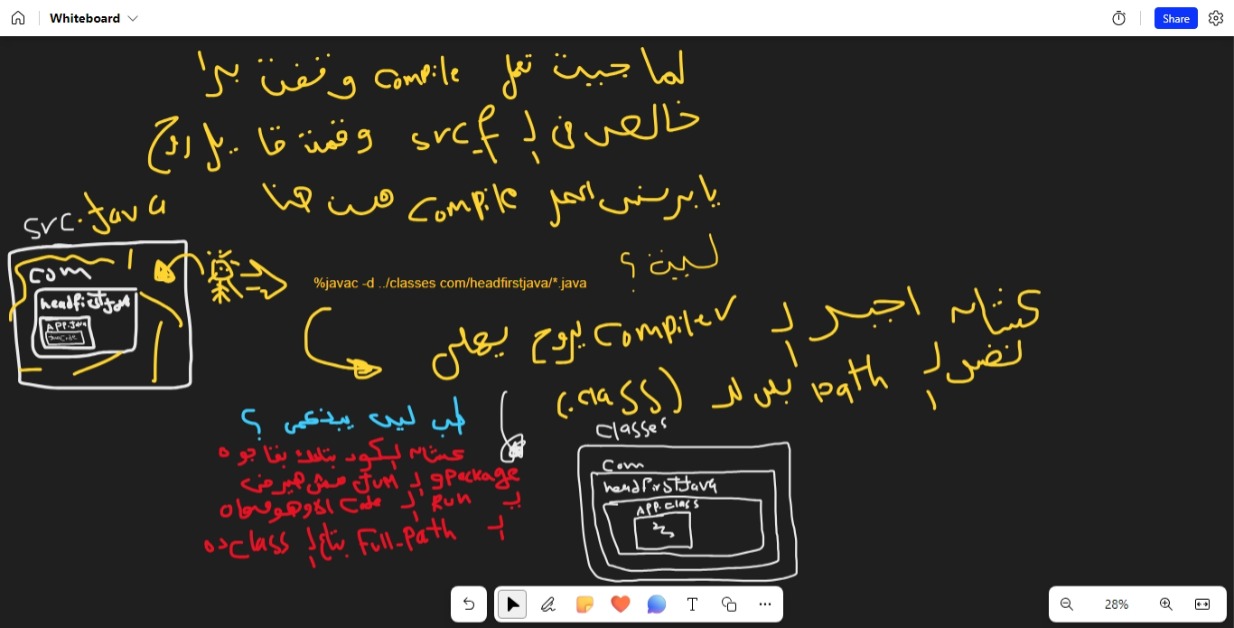 Whiteboard
Share
لما جيت تعمل compile وقفت برا
خالص في ال src وقمت قايل روح
يا برنس اعمل compile من هنا
ليه ؟
src.java
com
headfirstjava
APP.java
%javac -d ../classes com/headfirstjava/*.java
عشان اجبر ال compiler يروح يعملي
نفس ال path بس لل (.class)
طب ليه يبذعمى ؟
عشان الكود بتاعك بقا جوه
package و ال JVM مش هيرضى
ي Run ال Code الا وهو معاه
ال Full-Path بتاع ال class ده
classes
com
headfirstJava
APP.class
28%